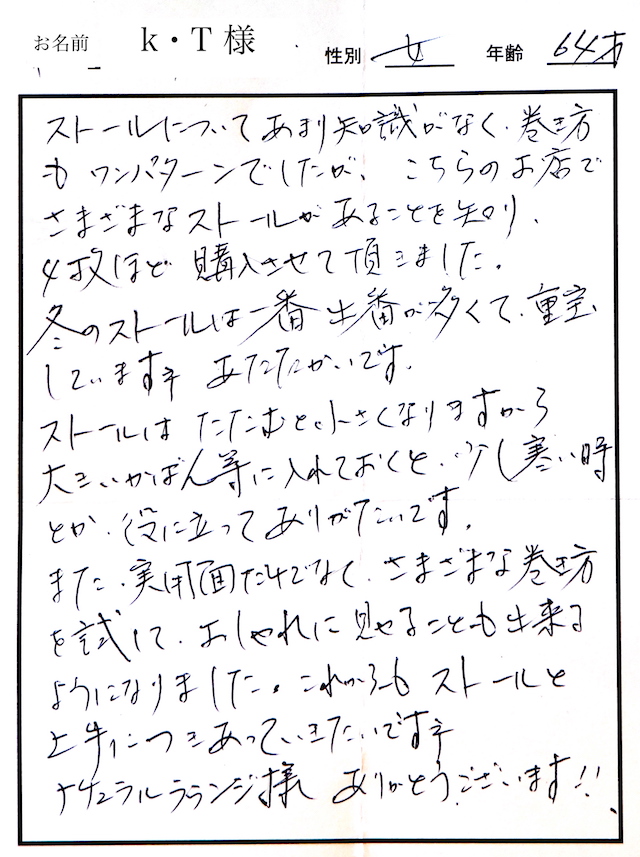 お名前 k・T様 性別 女 年齢 64才
ストールについてあまり知識がなく、巻き方
も ワンパターンでしたが、こちらのお店で
さまざまなストールがあることを知り、
4枚ほど 購入させて頂きました。
冬のストールは一番出番が多くて、重宝
しています。 あたたかいです。
ストールは たたむと小さくなりますから
大きいかばん等に入れておくと、少し寒い時
とか、役に立ってありがたいです。
また、実用面だけでなく、さまざまな巻き方
を試して、おしゃれに見せることも出来る
ようになりました。これからも ストールと
上手につきあっていきたいです。
ナチュラルラウンジ様 ありがとうございます!!